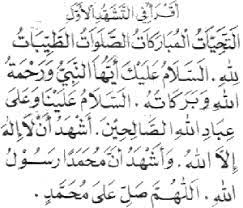 أقرأ في التشهد الأول
اَلتَّحِيَّاتُ الْمُبَارَكَاتُ الصَّلَوَاتُ الطَّيِّبَاتُ
لِلّٰهِ. اَلسَّلَامُ عَلَيْكَ أَيُّهَا النَّبِيُّ وَرَحْمَةُ
اللهِ وَبَرَكَاتُهُ. اَلسَّلَامُ عَلَيْنَا وَعَلَى
عِبَادِ اللهِ الصَّالِحِيْنَ. أَشْهَدُ أَنْ لَا إِلٰهَ
إِلَّا اللهُ. وَأَشْهَدُ أَنَّ مُحَمَّدًا رَسُوْلُ
اللهِ. اَللّٰهُمَّ صَلِّ عَلَى مُحَمَّدٍ.